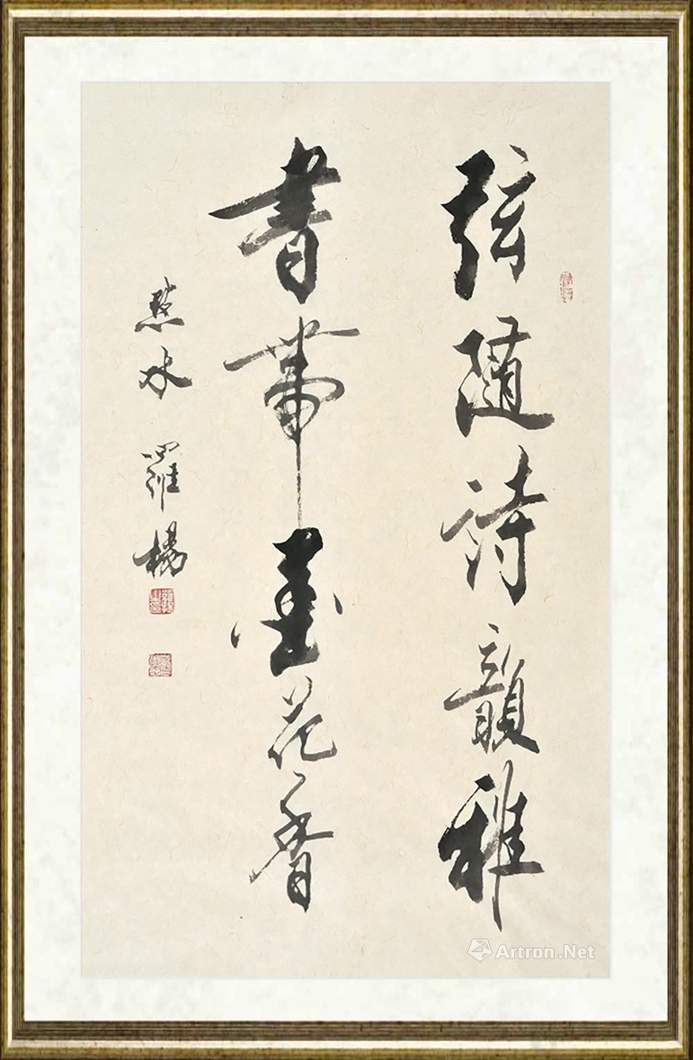 弦随诗韻雅
書帶墨花香
點水 羅楊
Artron.Net